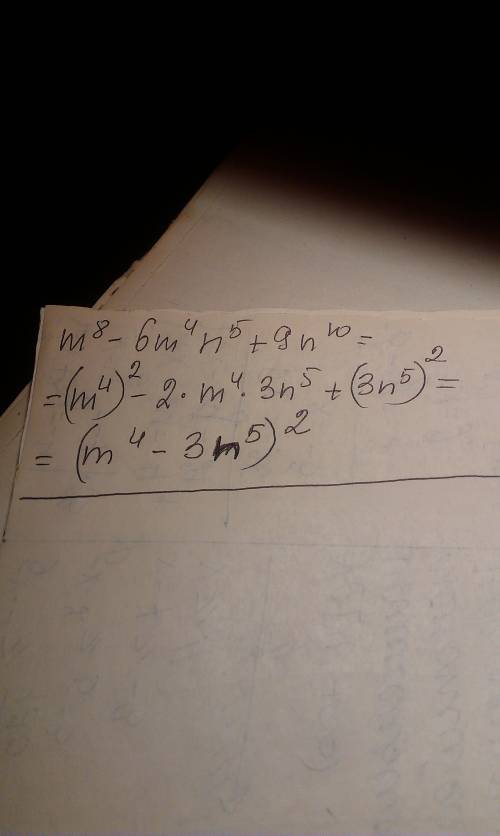 m⁸ - 6m⁴n⁵ + 9n¹⁰ =
= (m⁴)² - 2 · m⁴ · 3n⁵ + (3n⁵)² =
= (m⁴ - 3n⁵)²